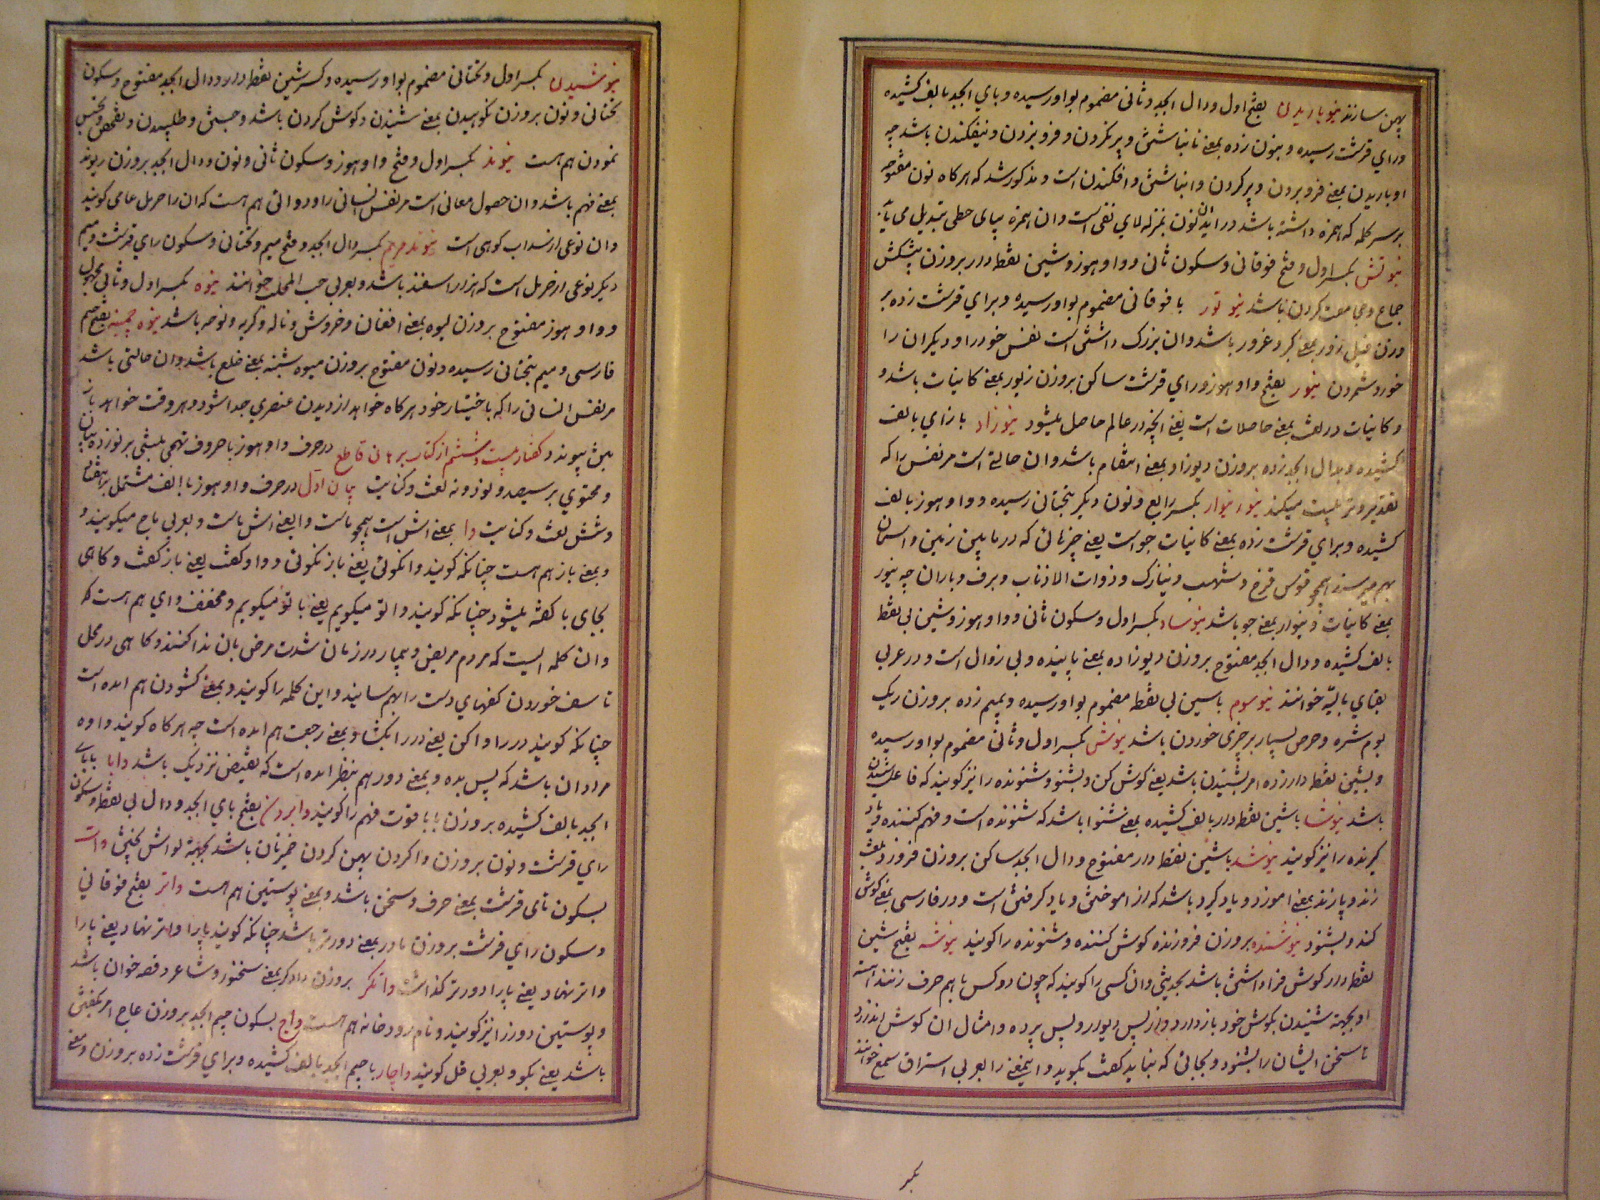 پهن سازند نیوباریدن بفتح اول و دال ابجد و ثانی مضموم بواو رسیده و بای ابجد بالف کشیده
و رای قرشت رسیده و بنون زده بمعنی نا انباشتن و پر نکردن و فرو نبردن و نیفکندن باشد چه
اوباریدن بمعنی فرو بردن و پر کردن و انباشتن و افکندن است و مذکور شد که هرگاه نون مفتوحه
بر سر کلمه که همزه داشته باشد در اید ان نون بمنزله لای نفی است و ان همزه بیای حطی تبدیل می یابد
نیوتش بکسر اول و فتح فوقانی و سکون ثانی و واو هوز و شین نقطه دار بروزن پیشکش
جماع و مجامعت کردن باشد نیوتور با فوقانی مضموم بواو رسیده و برای قرشت زده بر
وزن فیل زور بمعنی کبر و غرور باشد و ان بزرک داشتن است نفس خود را و دیکران را
خورد شمردن نیور بفتح واو هوز و رای قرشت ساکن بروزن زیور بمعنی کاینات باشد و
و کاینات در لغت بمعنی حاصلات است یعنی انچه در عالم حاصل میشود نیوزاد با زای بالف
کشیده و بدال ابجد زده بروزن دیوزاد بمعنی انتقام باشد و ان حالتی است مر نفس را که
تقدیر و تربیت میکند نیوار بکسر رابع و نون دیکر بتحتانی رسیده و واو هوز بالف
کشیده و برای قرشت زده بمعنی کاینات جو است یعنی چیزهائی که در مابین زمین و اسمان
بهم میرسند همچو قوس قزح و شهب و نیازک و ذوات الاذناب و برف و باران چه نیور
بمعنی کاینات و نیوار بمعنی جو باشد نیوساد بکسر اول و سکون ثانی و واو هوز و شین بی نقطه
بالف کشیده و دال ابجد مفتوح بروزن دیوزاده بمعنی پاینده و بی زوال است و در عربی
بقای بالله خوانند نیوسوم باسین بی نقطه مضموم بواو رسیده و بمیم زده بروزن ریک
بوم شره و حرص بسیار بر چیزی خوردن باشد نیوش بکسر اول و ثانی مضموم بواو رسیده
و بشین نقطه دار زده امر بشنیدن باشد یعنی کوش کن و بشنو و شنونده را نیز کویند که فاعل شنیدن
باشد نیوشا باشین نقطه دار بالف کشیده بمعنی شنوا باشد که شنونده است و فهم کننده و یاد
کیرنده را نیز کویند نیوشد باشین نقطه دار مفتوح و دال ابجد ساکن بروزن فروزد بلغت
زند و پازند بمعنی اموزد و یاد کیرد باشد که از اموختن و یاد کرفتن است و در فارسی بمعنی کوش
کند و بشنود نیوشنده بروزن فروزنده کوش کننده و شنونده را کویند نیوشه بفتح شین
نقطه دار کوش فرا داشتن باشد بحدیثی و ان کسی را کویند که چون دو کس با هم حرف زنند اهسته
او بجهة شنیدن کوش خود باز دارد و از پس دیوار و پس پرده و امثال ان کوش اندازد
تا سخن ایشان را بشنود و بجائی که نباید کفت بکوید و اینمعنی را بعربی استراق سمع خوانند
نیوشیدن بکسر اول و تحتانی مضموم بواو رسیده و کسر شین نقطه دار و دال ابجد مفتوح و سکون
تحتانی و نون بروزن نکوهیدن بمعنی شنیدن و کوش کردن باشد و جستن و طلبیدن و تفحص و تجسس
نمودن هم هست نیوند بکسر اول و فتح واو هوز و سکون ثانی و نون و دال ابجد بروزن ریوند
بمعنی فهم باشد و ان حصول معانی است مر نفس انسانی را و دوائی هم هست که ان را حرمل عامی کویند
و ان نوعی از سداب کوهی است نیوند مرجم بکسر دال ابجد و فتح میم و تحتانی و سکون رای قرشت و میم
دیکر نوعی از حرمل است که هزار اسفند باشد و بعربی حب المحلب خوانند نیوه بکسر اول و ثانی مجهول
و واو هوز مفتوح بروزن لیوه بمعنی افغان و خروش و ناله و کریه و نوحه باشد نیوه چمینه بفتح جیم
فارسی و میم بتحتانی رسیده و نون مفتوح بروزن میوه شبینه بمعنی خلع باشد و ان حالتی باشد
مر نفس انسانی را که باختیار خود هرکاه خواهد از بدن عنصری جدا شود و هر وقت خواهد باز
بتن پیوندد کفتار بیست و ششم از کتاب برهان قاطع در حرف واو هوز با حروف تهجی مبتنی بر نوزده بیان
و محتوی بر سیصد و نوزده لغت و کنایت بیان اول در حرف واو هوز با الف مشتمل بر هفتاد
و شش لغت و کنایت وا بمعنی اش است همچو ماست وا یعنی اش ماست و بعربی باج میکویند و
و بمعنی باز هم هست چنانکه کویند وانکوئی یعنی باز نکوئی و واو کفت یعنی باز کفت و کاهی
بجای با کفته میشود چنانکه کویند وا تو میکویم یعنی با تو میکویم و مخفف وای هم هست که
و ان کلمه ایست که مردم مریض و بیمار در زمان شدت مرض بان ندا کنند و کاهی در محل
تاسف خوردن کفهای دست را بهم سایند و این کلمه را کویند و بمعنی کشودن هم امده است
چنانکه کویند در را وا کن یعنی در را بکشا و بمعنی رجعت هم امده است چه هرکاه کویند واده
مراد ان باشد که پس بده و بمعنی دور هم بنظر امده است که نقیض نزدیک باشد وابا بابای
ابجد بالف کشیده بروزن بابا قوت فهم را کویند وابردن بفتح بای ابجد و دال بی نقطه و سکون
رای قرشت و نون بروزن واکردن پهن کردن خمیر نان باشد بجهة لواش پختن وات
بسکون تای قرشت بمعنی حرف و سخن باشد و بمعنی پوستین هم هست واتر بفتح فوقانی
و سکون رای قرشت بروزن مادر بمعنی دورتر باشد چنانکه کویند پا را واتر نهاد یعنی پا را
واتر نهاد یعنی پا را دورتر کذاشت واتکر بروزن دادکر بمعنی سخنور و شاعر و قصه خوان باشد
و پوستین دوز را نیز کویند و نام رودخانه هم هست واج بسکون جیم ابجد بروزن عاج امر بکفتن
باشد یعنی بکو و بعربی قل کویند واجار باجیم ابجد بالف کشیده و برای قرشت زده بروزن و معنی